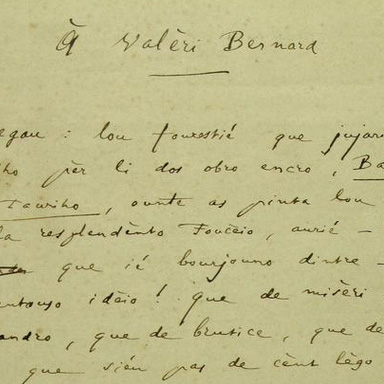 À Valèri Bernard
egau : lou fourestié que jujar
ho pèr li dos obro encro, Ba
Tauriho, ounte as pinta lou
la resplendènto Foucèio, aurié -
que ié bourjouno dintre -
entouso idèio ! que de misèri
andro, que de brutice, que de
que siéu pas de cènt lègo